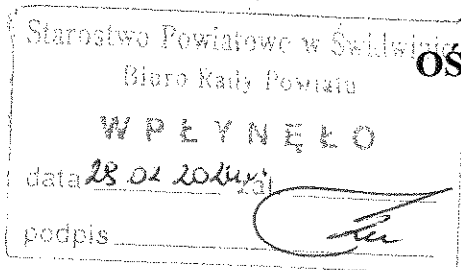 Starostwo Powiatowe w Świdwinie
OŚ
Biuro Rady Powiatu
WPŁYNĘŁO
data zał
podpis